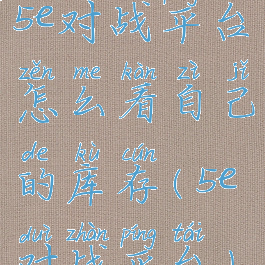 5e对战平台
zěn me kàn zì jǐ
怎么看自己
de kù cún
的库存(5e
duì zhàn píng tái
对战平台)